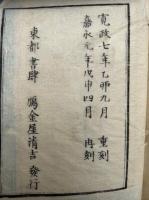 寛政七年乙卯九月　重刻
嘉永元年戊申四月　再刻
東都　書肆　鴈金屋清吉　發行